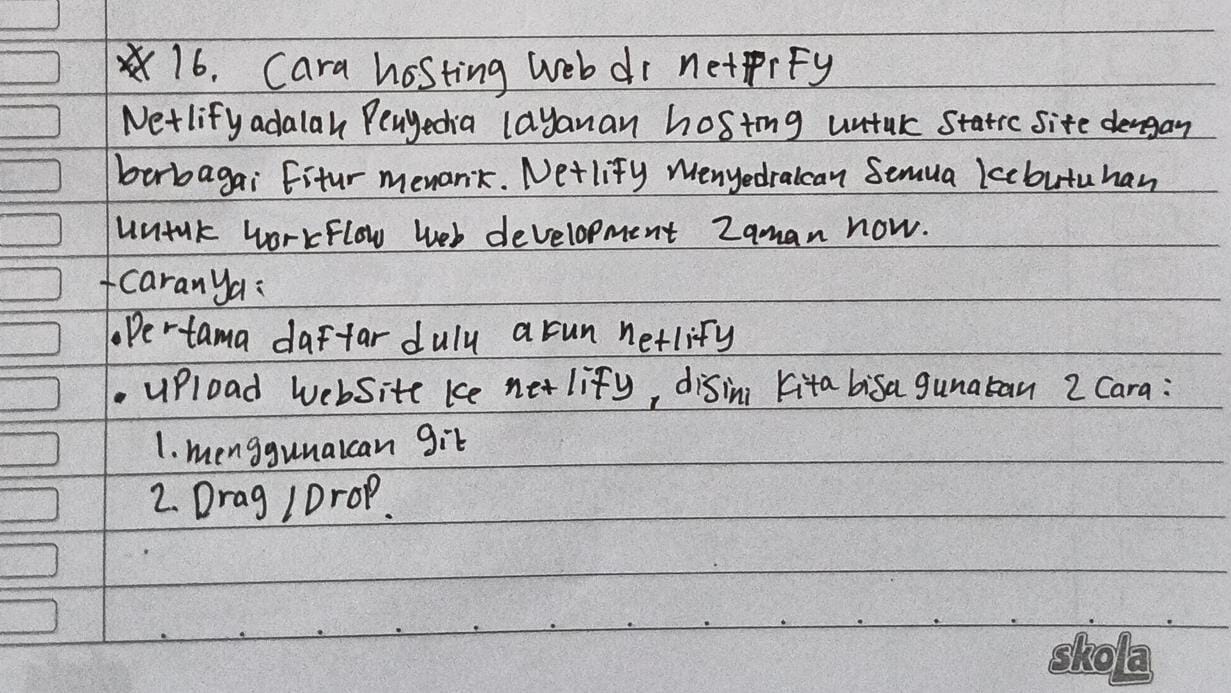 16. Cara hosting Web di netlify
Netlify adalah Penyedia layanan hosting untuk Static Site dengan
berbagai Fitur menarik. Netlify Menyediakan Semua kebutuhan
untuk workFlow Web development Zaman now.
- caranya:
• Pertama daftar dulu akun netlify
• UPload WebSite ke netlify, disini kita bisa gunakan 2 Cara:
1. menggunakan git
2. Drag / Drop.
skola